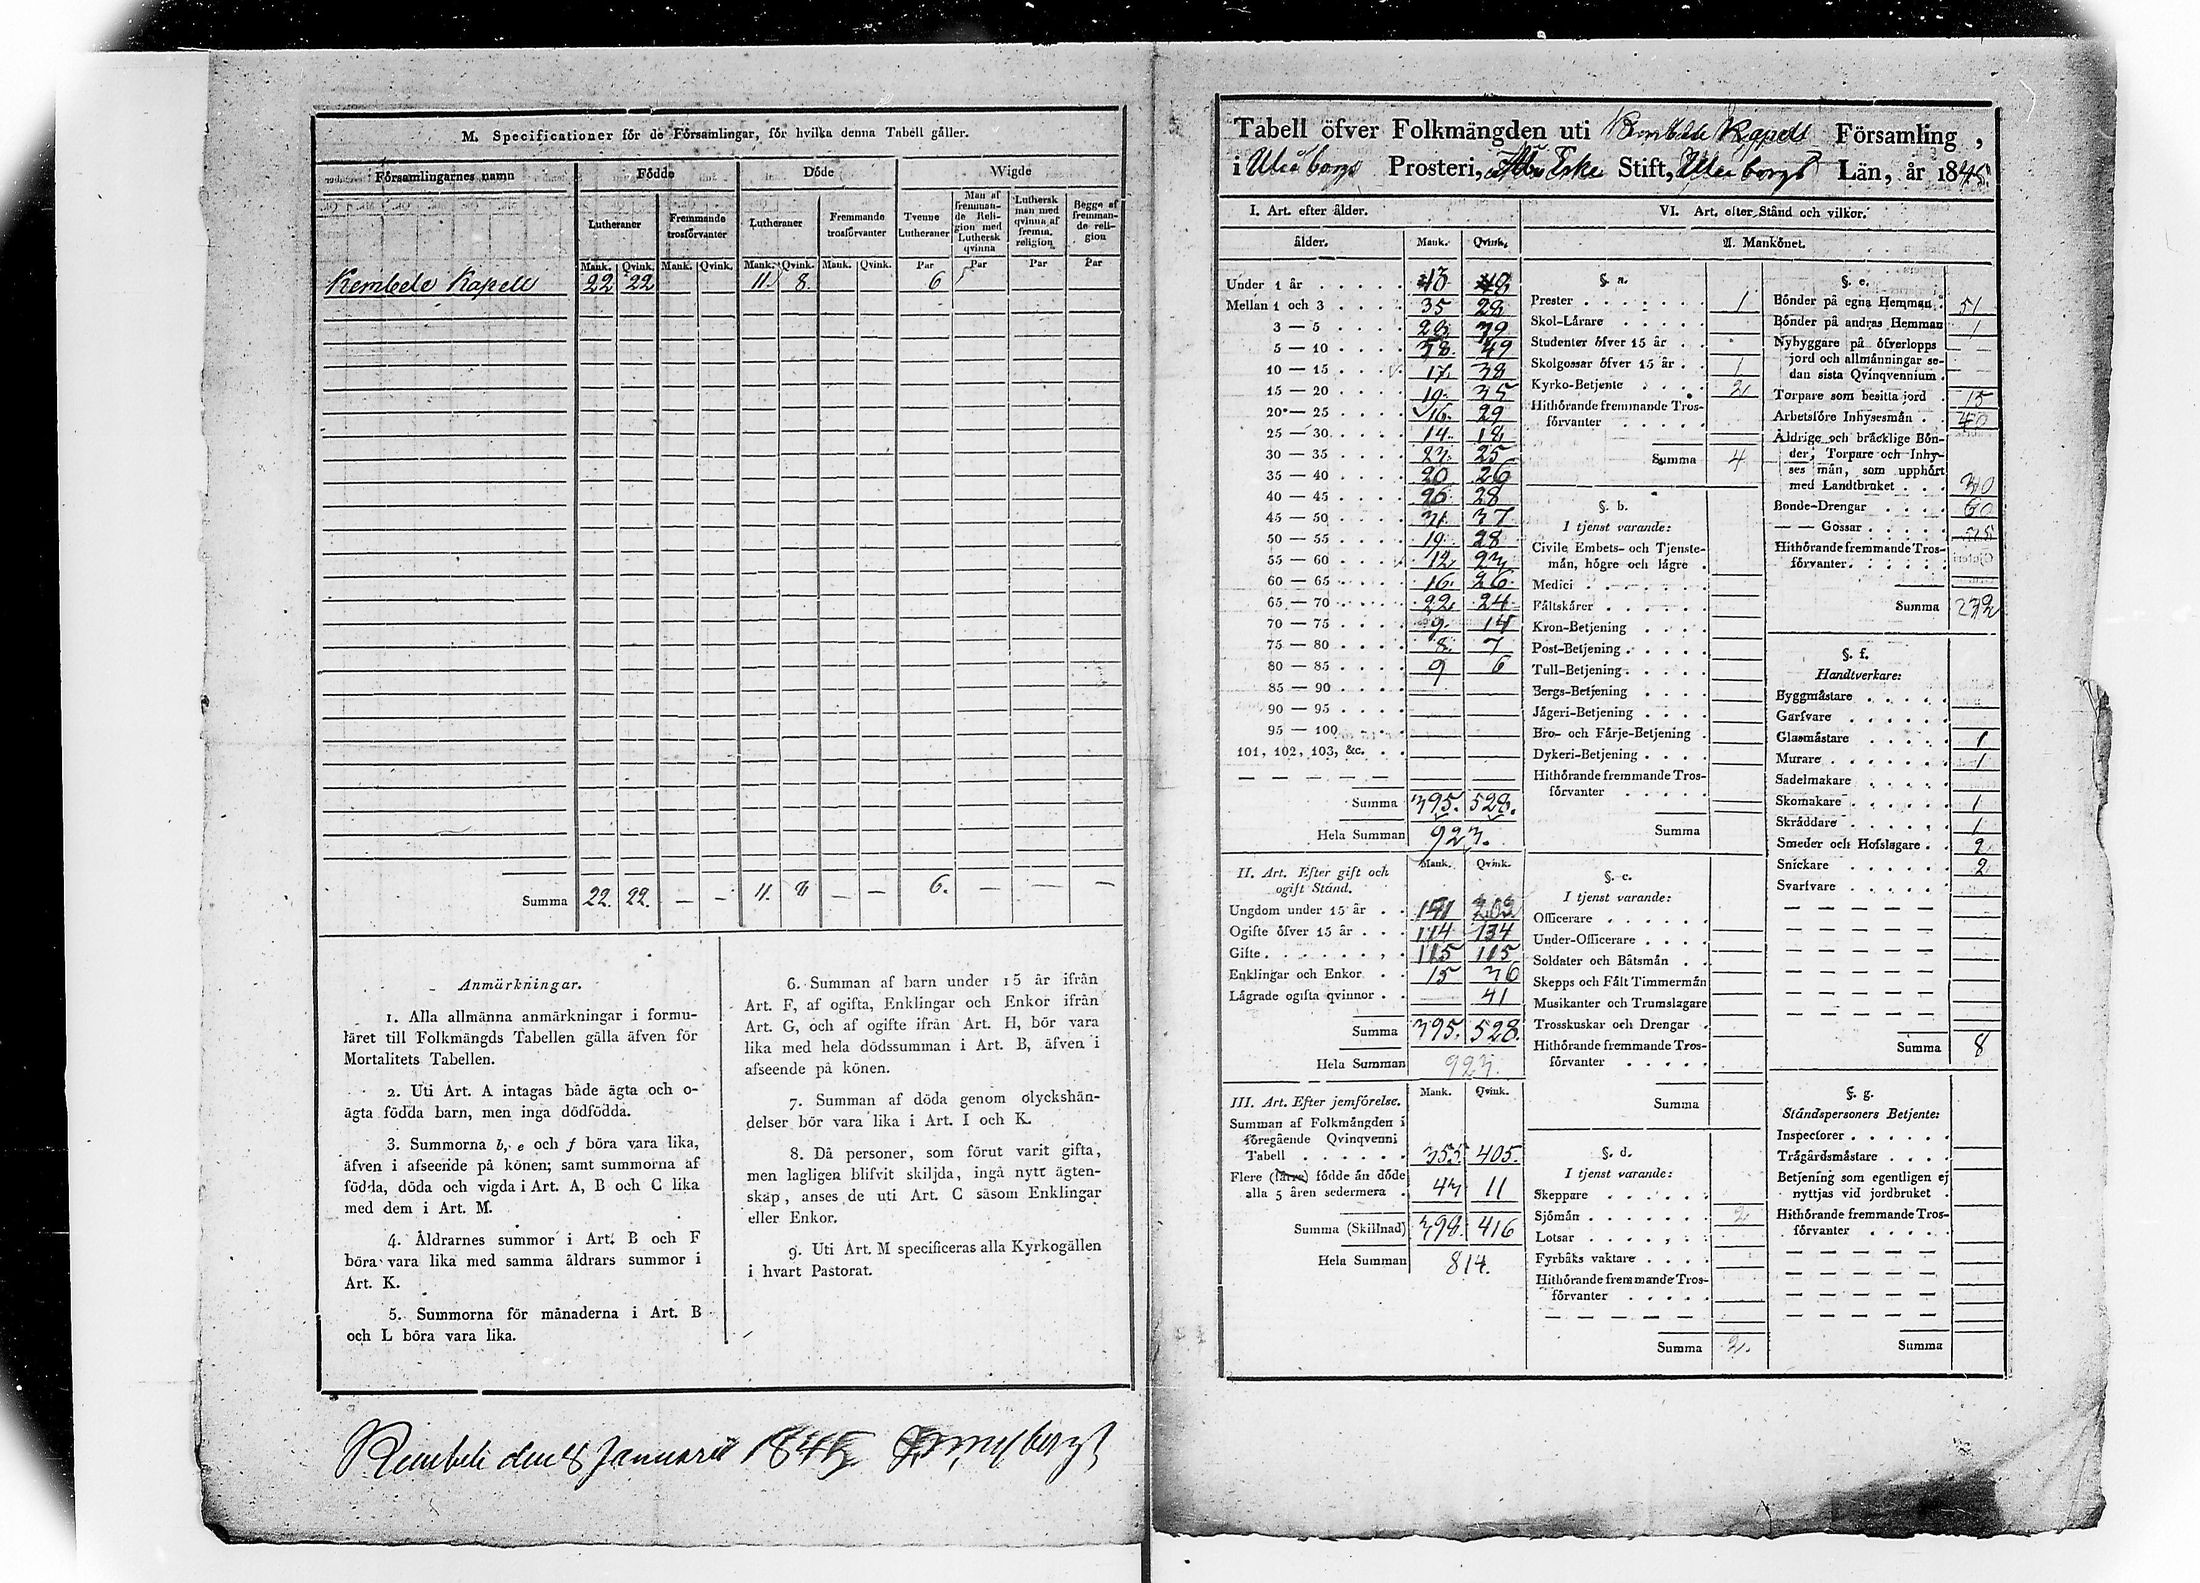 M. Specificationer för de Församlingar, för hvilka denna Tabell gäller.
Församlingarnes namn Födde Döde Wigde
Lutheraner Fremmande trosförvanter Lutheraner Fremmande trosförvanter Tvenne Lutheraner Man af fremmande Religion med Luthersk qvinna Luthersk man med qvinna af fremm. religion Begge af fremmande religion
Mank. Qvink. Mank. Qvink. Mank. Qvink. Mank. Qvink. Par Par Par Par
Kembele Kapell 22 22 11 8. 6
Summa 22. 22. — — 11. 8 — — 6. — — —
Anmärkningar.
1. Alla allmänna anmärkningar i formu-
läret till Folkmängds Tabellen gälla äfven för
Mortalitets Tabellen.
2. Uti Art. A intagas både ägta och o-
ägta födda barn, men inga dödfödda.
3. Summorna b, e och f böra vara lika,
äfven i afseende på könen; samt summorna af
födda, döda och vigda i Art. A, B och C lika
med dem i Art. M.
4. Åldrarnes summor i Art. B och F
böra vara lika med samma åldrars summor i
Art. K.
5. Summorna för månaderna i Art. B
och L böra vara lika.
6. Summan af barn under 15 år ifrån
Art. F, af ogifta, Enklingar och Enkor ifrån
Art. G, och af ogifte ifrån Art. H, bör vara
lika med hela dödssumman i Art. B, äfven i
afseende på könen.
7. Summan af döda genom olyckshän-
delser bör vara lika i Art. I och K.
8. Då personer, som förut varit gifta,
men lagligen blifvit skiljda, ingå nytt ägten-
skap, anses de uti Art. C såsom Enklingar
eller Enkor.
9. Uti Art. M specificeras alla Kyrkogällen
i hvart Pastorat.
den 8 Januarii
Tabell öfver Folkmängden uti Kembele Kapell Församling,
i Uleåborgs Prosteri, Åbo Erke Stift, Uleåborgs Län, år 1845.
I. Art. efter ålder.
ålder. Mank. Qvink.
Under 1 år
Mellan 1 och 3 35 28
3 — 5
5 — 10 38. 49
10 — 15 17. 38
15 — 20 19. 35
20 — 25 16. 29
25 — 30 14. 18
30 — 35 23. 25
35 — 40 20 26
40 — 45 26 28
45 — 50 31. 37
50 — 55 19. 28
55 — 60 12 23
60 — 65 16. 26.
65 — 70 22. 24
70 — 75 9. 14
75 — 80 8. 7
80 — 85 9 6
85 — 90
90 — 95
95 — 100
101, 102, 103, &c.
Summa 395. 528.
Hela Summan 923.
Mank. Qvink.
II. Art. Efter gift och
ogift Stånd.
Ungdom under 15 år 151 202
Ogifte öfver 15 år 114 134
Gifte 115 115
Enklingar och Enkor 15 36
Lägrade ogifta qvinnor 41
Summa 395. 528.
Hela Summan 923.
Mank. Qvink.
III. Art. Efter jemförelse.
Summan af Folkmängden i
föregående Qvinqvenni
Tabell 355 405.
Flere (färre) födde än döde
alla 5 åren sedermera 43 11
Summa (Skillnad) 398. 416
Hela Summan 814.
VI. Art. efter Stånd och vilkor.
A. Mankönet.
§. a.
Prester 1
Skol-Lärare
Studenter öfver 15 år
Skolgossar öfver 15 år 1
Kyrko-Betjente 2
Hithörande fremmande Tros-
förvanter
Summa 4
§. b.
I tjenst varande:
Civile Embets- och Tjenste-
män, högre och lägre
Medici
Fältskärer
Kron-Betjening
Post-Betjening
Tull-Betjening
Bergs-Betjening
Jägeri-Betjening
Bro- och Färje-Betjening
Dykeri-Betjening
Hithörande fremmande Tros-
förvanter
Summa
§. c.
I tjenst varande:
Officerare
Under-Officerare
Soldater och Båtsmän
Skepps och Fält Timmermän
Musikanter och Trumslagare
Trosskuskar och Drengar
Hithörande fremmande Tros-
förvanter
Summa
§. d.
I tjenst varande:
Skeppare
Sjömän 2
Lotsar
Fyrbåks vaktare
Hithörande fremmande Tros-
förvanter
Summa 2.
§. e.
Bönder på egna Hemman 51
Bönder på andras Hemman 1
Nybyggare på öfverlopps
jord och allmänningar se-
dan sista Qvinqvennium
Torpare som besitta jord 15
Arbetsföre Inhysesmän 40
Åldrige och bräcklige Bön-
der, Torpare och Inhy-
ses män, som upphört
med Landtbruket 30
Bonde-Drengar 60
— — Gossar
Hithörande fremmande Tros-
förvanter
Summa 232
§. f.
Handtverkare:
Byggmästare
Garfvare
Glasmästare 1
Murare 1
Sadelmakare
Skomakare 1
Skräddare 1
Smeder och Hofslagare 2
Snickare 2
Svarfvare
Summa 8
§. g.
Ståndspersoners Betjente:
Inspectorer
Trägårdsmästare
Betjening som egentligen ej
nyttjas vid jordbruket
Hithörande fremmande Tros-
förvanter
Summa